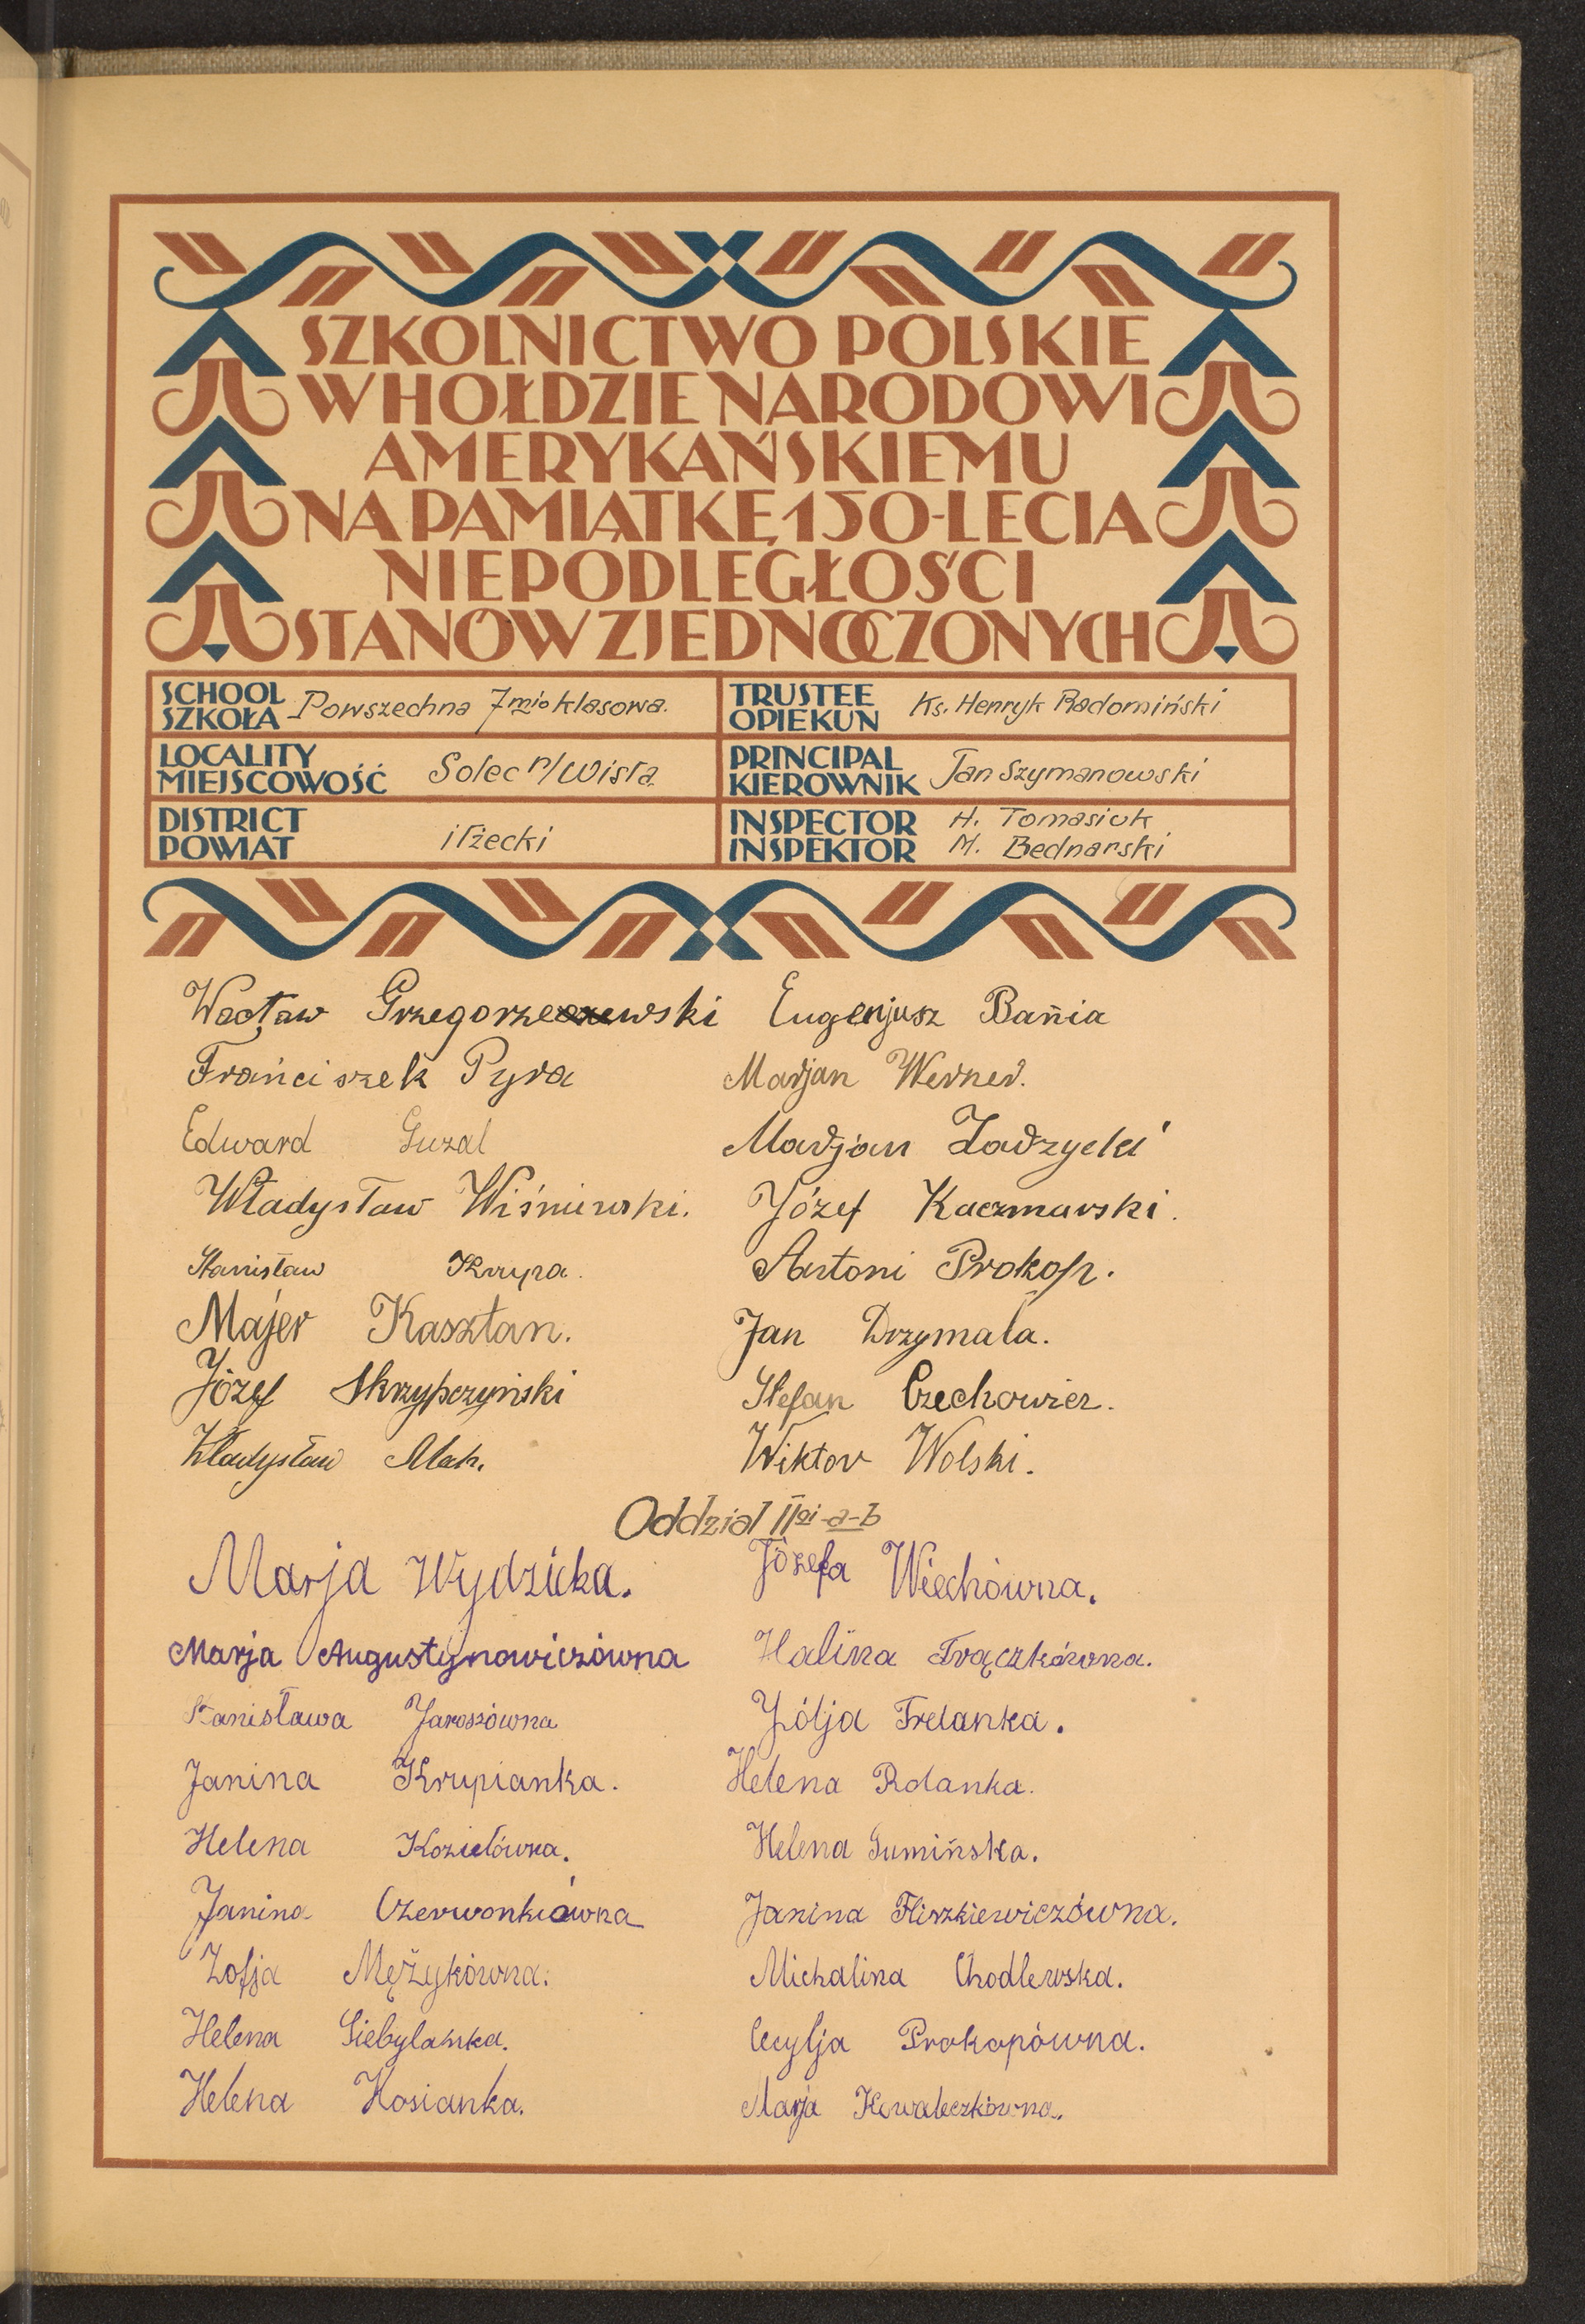 SZKOLNICTWO POLSKIE
W HOŁDZIE NARODOWI
AMERYKAŃSKIEMU
NA PAMIĄTKĘ 150-LECIA
NIEPODLEGŁOŚCI
STANÓW ZJEDNOCZONYCH
SCHOOL
SZKOŁA Powszechna 7mio klasowa.
TRUSTEE
OPIEKUN Ks. Henryk Radomiński
LOCALITY
MIEJSCOWOŚĆ Solec n/Wisłą
PRINCIPAL
KIEROWNIK Jan Szymanowski
DISTRICT
POWIAT iłżecki
INSPECTOR H. Tomasiuk
INSPEKTOR M. Bednarski
Wacław Grzegorzewski Eugenjusz Bańia
Frańciszek Pyra Marjan Werner.
Edward Guzal Marjan Zadzycki
Władysław Wiśniewski. Józef Kaczmarski.
Stanisław Krupa. Antoni Prokop.
Majer Kasztan. Jan Drzymała.
Józef Skrzypczyński Stefan Czechowicz.
Władysław Mak. Wiktor Wolski.
Oddział IIgi a-b
Marja Wydzicka. Józefa Wiechówna.
Marja Augustynowiczówna Halina Trączkówna.
Stanisława Jaroszówna Zófja Frelanka.
Janina Krupianka. Helena Rolanka.
Helena Koziełówna. Helena Gumińska.
Janina Czerwonkiówna Janina Fliszkiewiczówna.
Zofja Mężykówna. Michalina Chodlewska.
Helena Siebylanka. Cecylja Prokopówna.
Helena Kosianka. Marja Kowaleczkówna.